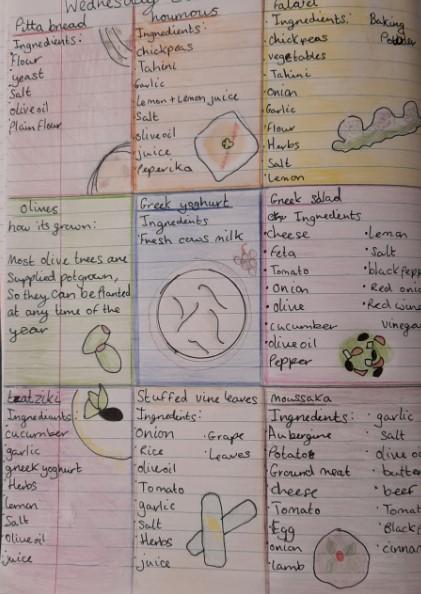 Wednesday
Pitta bread
Ingredients:
Flour
yeast
Salt
olive oil
Plain flour
houmous
Ingredients:
chickpeas
Tahini
Garlic
Lemon + Lemon juice
Salt
olive oil
juice
Peperika
falafel
Ingredients:
chickpeas
vegetables
Tahini
Onion
Garlic
flour
Herbs
Salt
Lemon
Baking
Powder
Olives
how its grown:
Most olive trees are
Supplied potgrown,
So they can be planted
at any time of the
year
Greek yoghurt
Ingredients
Fresh cows milk
Greek salad
Ingredients
cheese
feta
Tomato
Onion
olive
cucumber
olive oil
Pepper
Lemon
Salt
black pepp
Red onio
Red wine
vinegar
tzatziki
Ingredients:
cucumber
garlic
greek yoghurt
Herbs
lemon
Salt
Olive oil
juice
Stuffed vine leaves
Ingredients:
Onion
Rice
olive oil
Tomato
garlic
Salt
Herbs
juice
Grape
Leaves
moussaka
Ingredients:
Aubergine
Potatoe
Ground meat
cheese
Tomato
Egg
onion
lamb
garlic
Salt
olive o
butte
beef
Tomat
Black
cinna